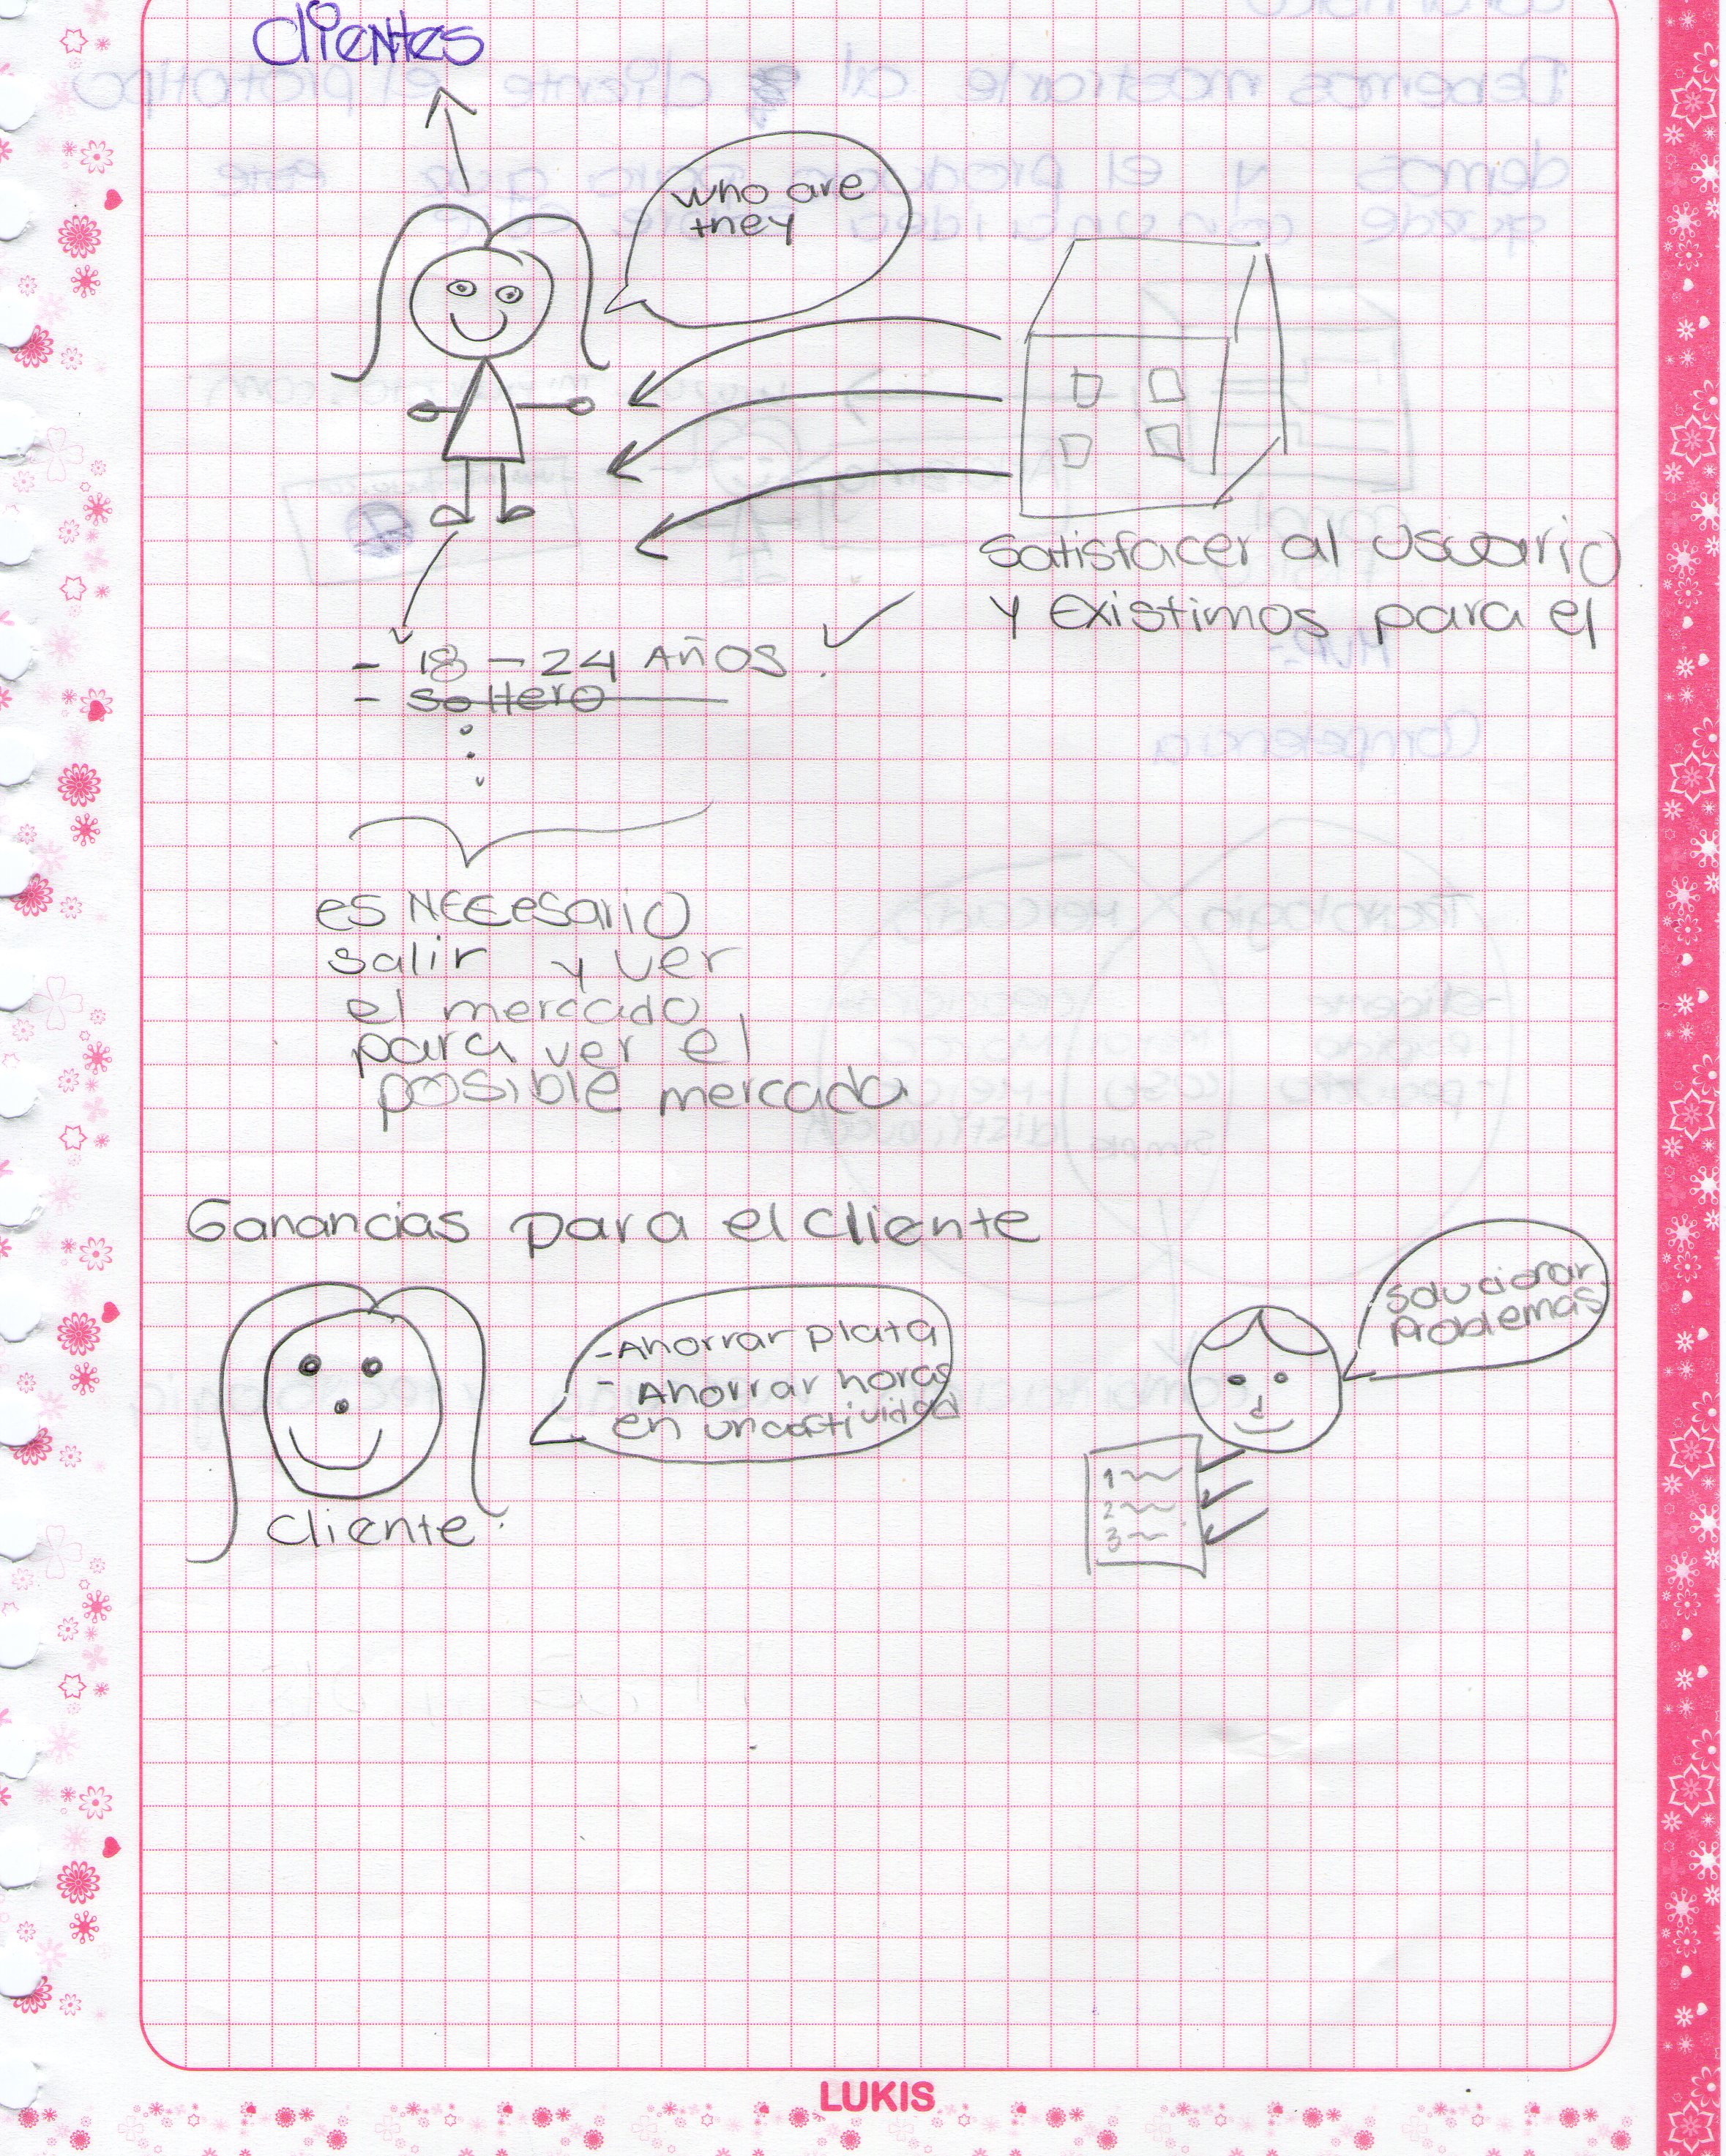 clientes
who are
they
satisfacer al usuario
y existimos para el
- 18 - 24 Años
- soltero
es necesario
salir y ver
el mercado
para ver el
posible mercado
Ganancias para el cliente
- Ahorrar plata
- Ahorrar horas
en una actividad
solucionar
problemas
1
2
3
cliente
LUKIS